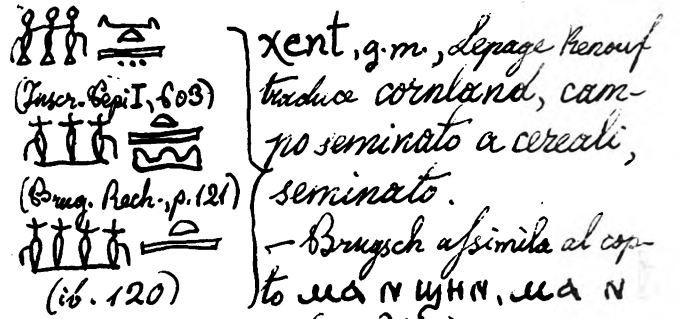 (Inscr. Pepi I, 603)
(Brug. Rech., p. 121)
(ib. 120)
χent, g. m., Lepage Renouf
traduce cornland, cam-
po seminato a cereali,
seminato.
— Brugsch assimila al cop-
to ⲙⲁ ⲛ ϣⲏⲛ, ⲙⲁ ⲛ